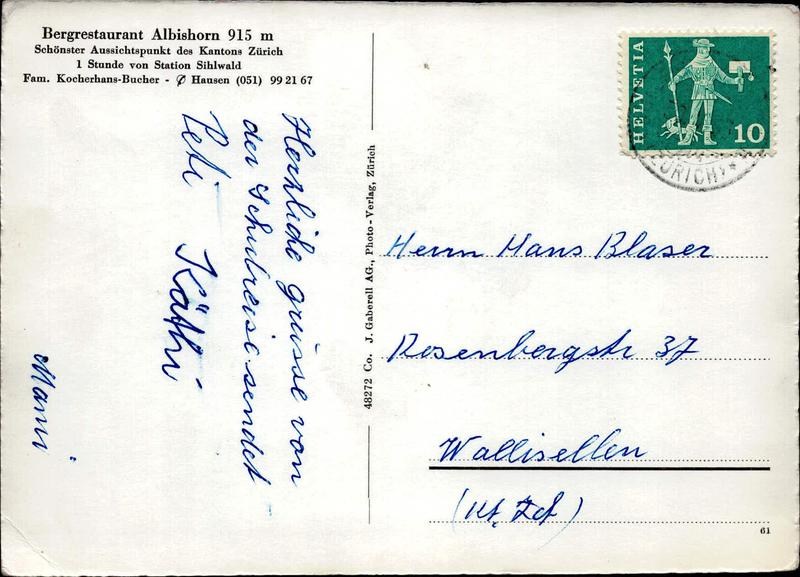 Bergrestaurant Albishorn 915 m
Schönster Aussichtspunkt des Kantons Zürich
1 Stunde von Station Sihlwald
Fam. Kocherhans-Bucher - ✆ Hausen (051) 99 21 67
Herzliche grüsse von
der Schulreise sendet
Peti Käthi
Mami
48272 Co. J. Gaberell AG., Photo-Verlag, Zürich
HELVETIA
10
(ZÜRICH)
Herrn Hans Blaser
Rosenbergstr 37
Wallisellen
(Kt. Zch)
61